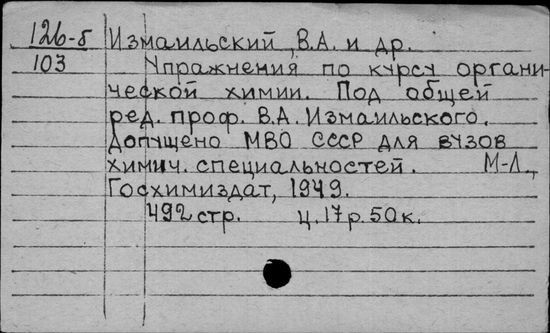 126-б Измаильский, В.А. и др.
103 Упражнения по курсу органи-
ческой химии. Под общей
ред. проф. В.А. Измаильского.
Допущено МВО СССР для вузов
химич. специальностей. М-Л.,
Госхимиздат, 1949.
492 стр. ц. 17 р. 50 к.